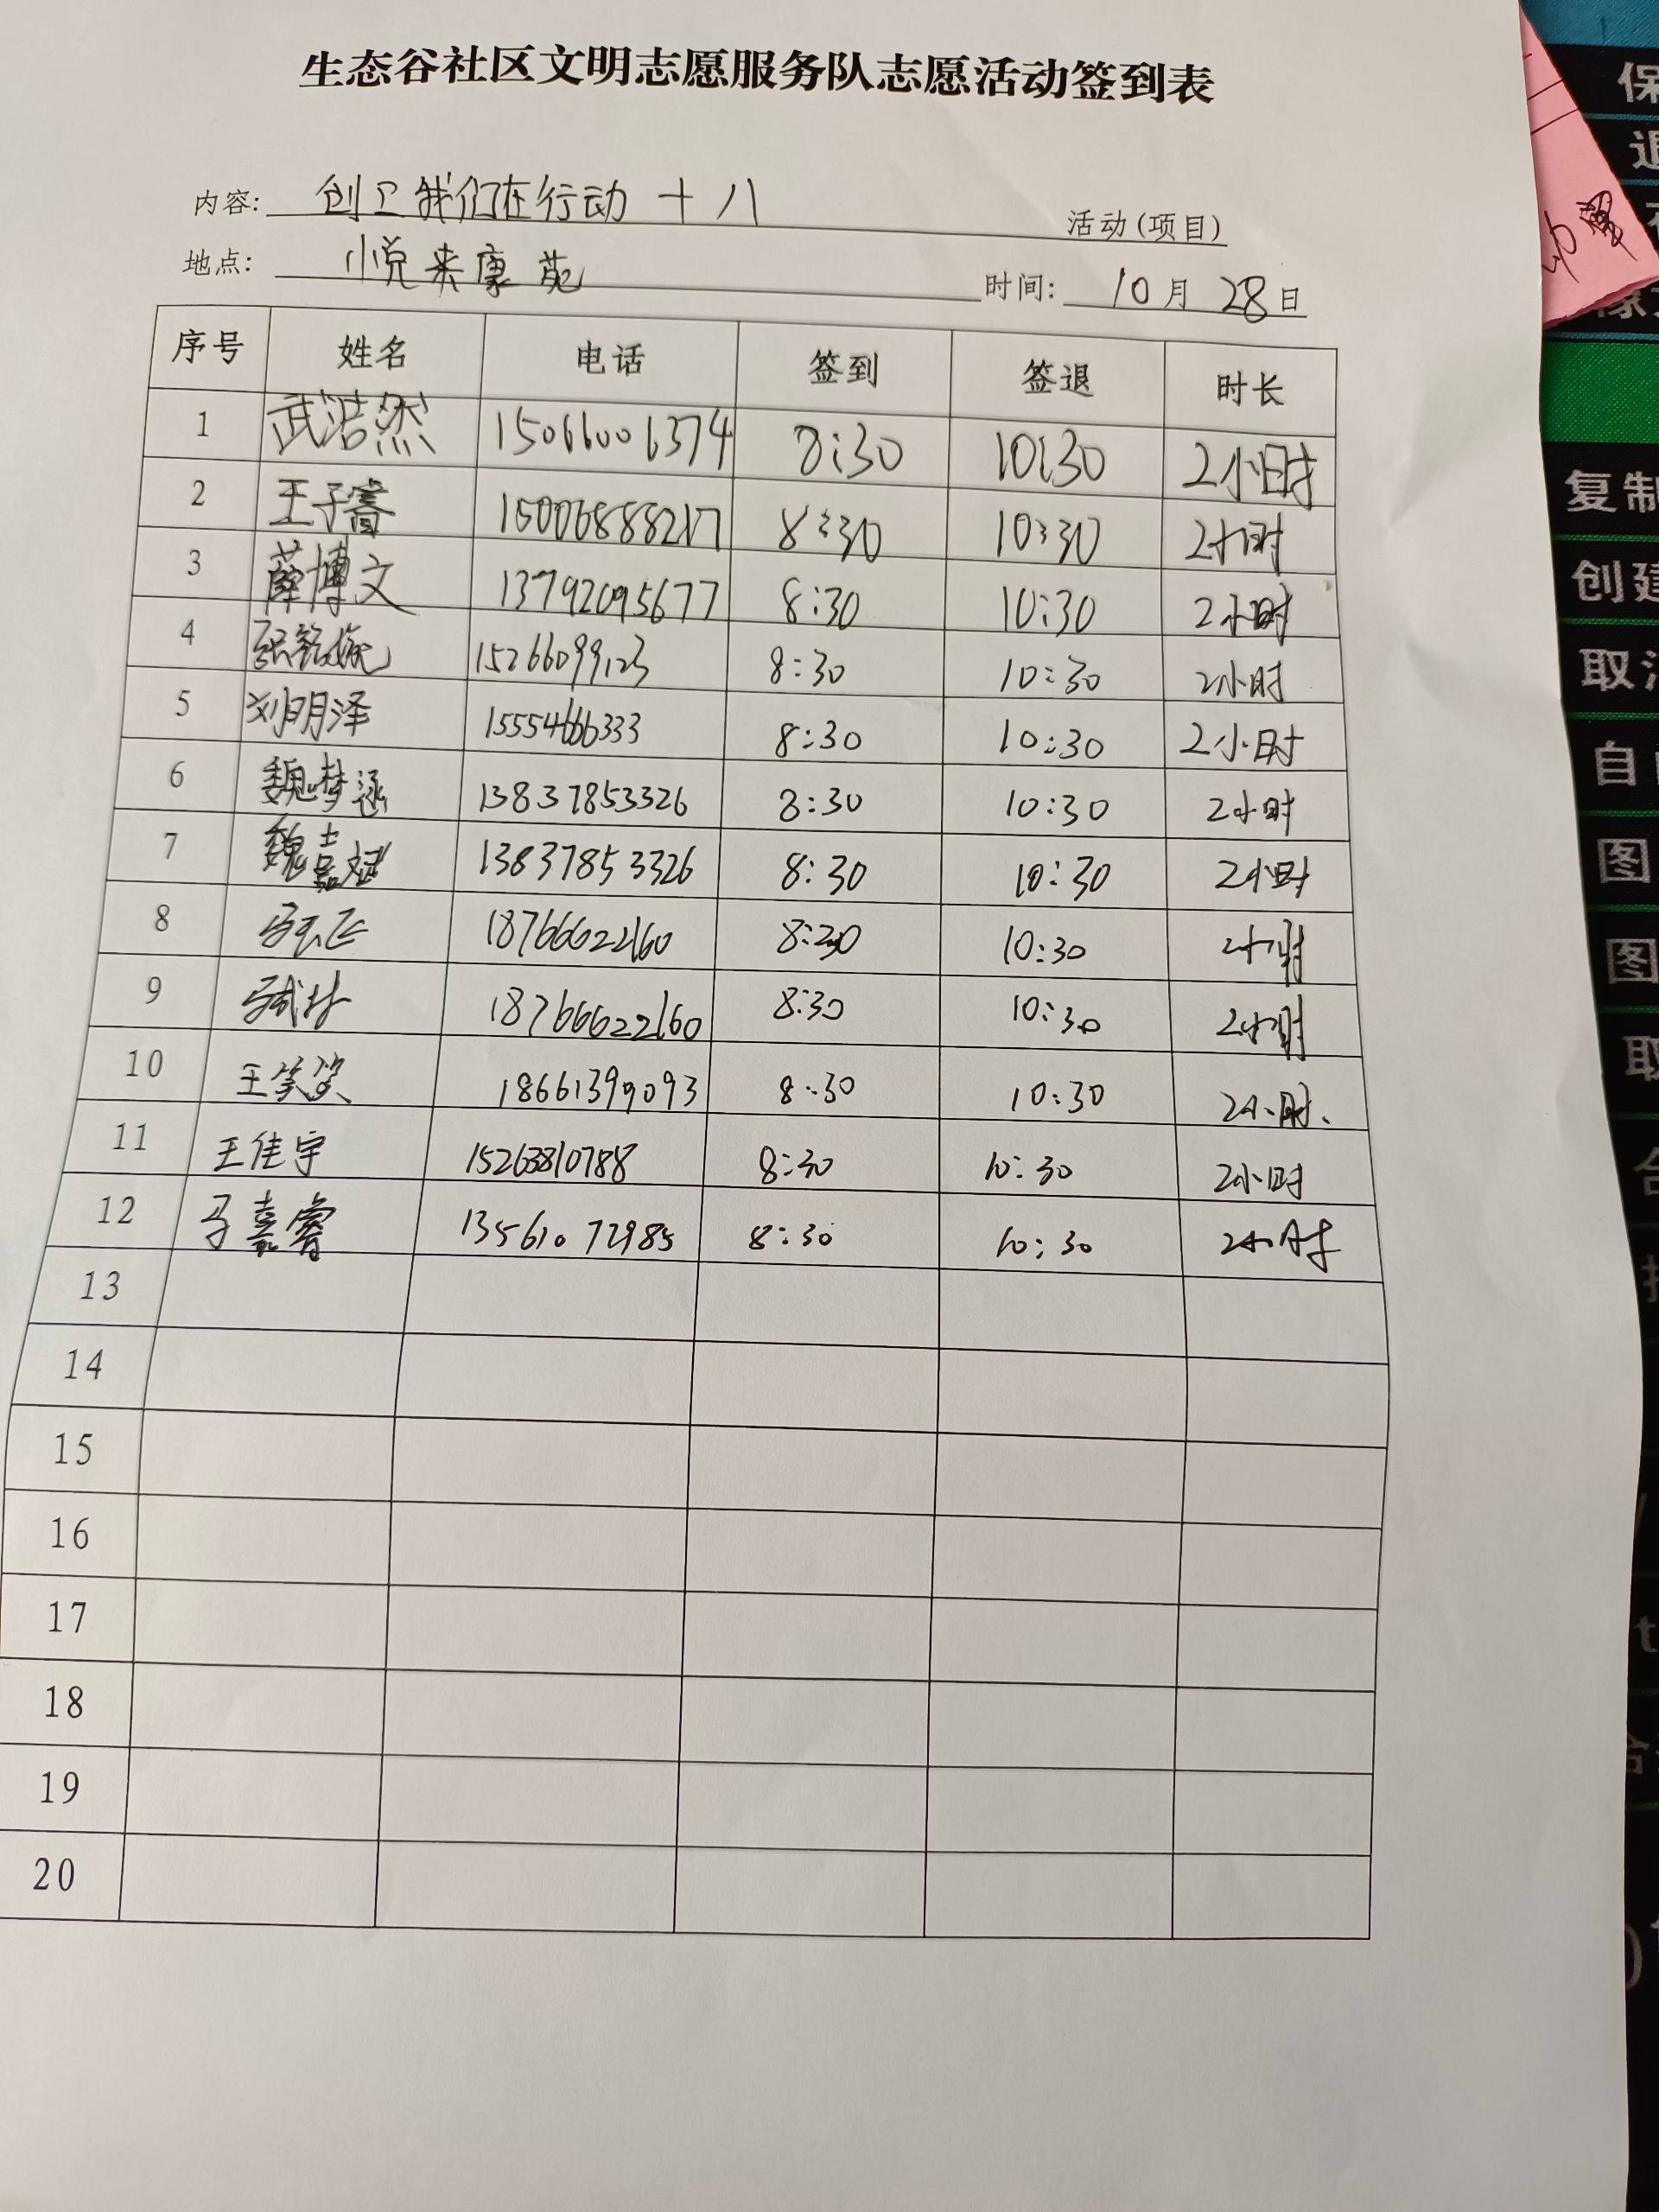 生态谷社区文明志愿服务队志愿活动签到表
内容: 创卫我们在行动 十八 活动(项目)
地点: 小悦来康苑 时间: 10月28日
序号 姓名 电话 签到 签退 时长
1 武浩然 15066006374 8:30 10:30 2小时
2 王子睿 15006888217 8:30 10:30 2小时
3 薛博文 13792095677 8:30 10:30 2小时
4 15266099123 8:30 10:30 2小时
5 刘明泽 15554666333 8:30 10:30 2小时
6 魏梦涵 13837853326 8:30 10:30 2小时
7 魏嘉斌 13837853326 8:30 10:30 2小时
8 18766622160 8:30 10:30 2小时
9 18766622160 8:30 10:30 2小时
10 王笑笑 18661399093 8:30 10:30 2小时
11 王佳宇 15263810788 8:30 10:30 2小时
12 马嘉睿 13561072985 8:30 10:30 2小时
13
14
15
16
17
18
19
20
保
退
复制
创建
取消
自
图
图
取
合